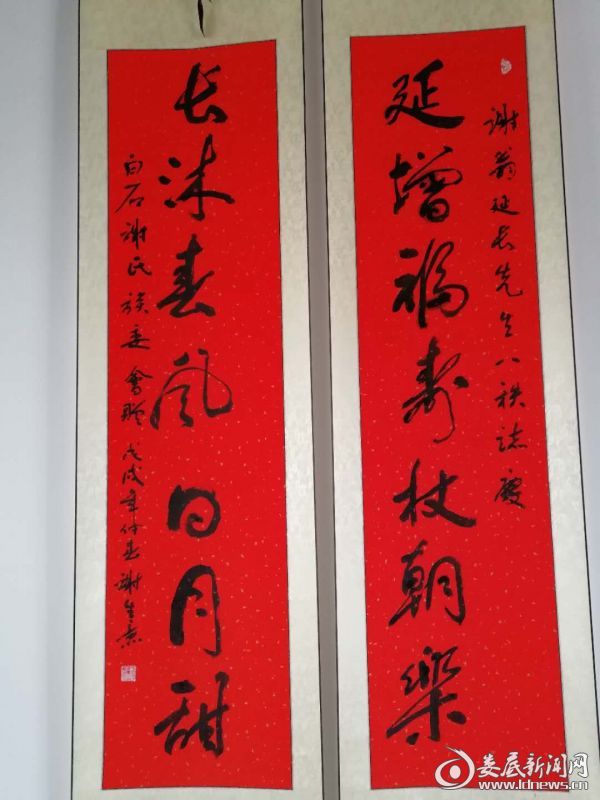 谢翁延长先生八秩志庆
延增福寿杖朝乐
长沐春风日月甜
白石谢氏族委会赠 戊戌年仲春 谢
娄底新闻网
www.ldnews.cn